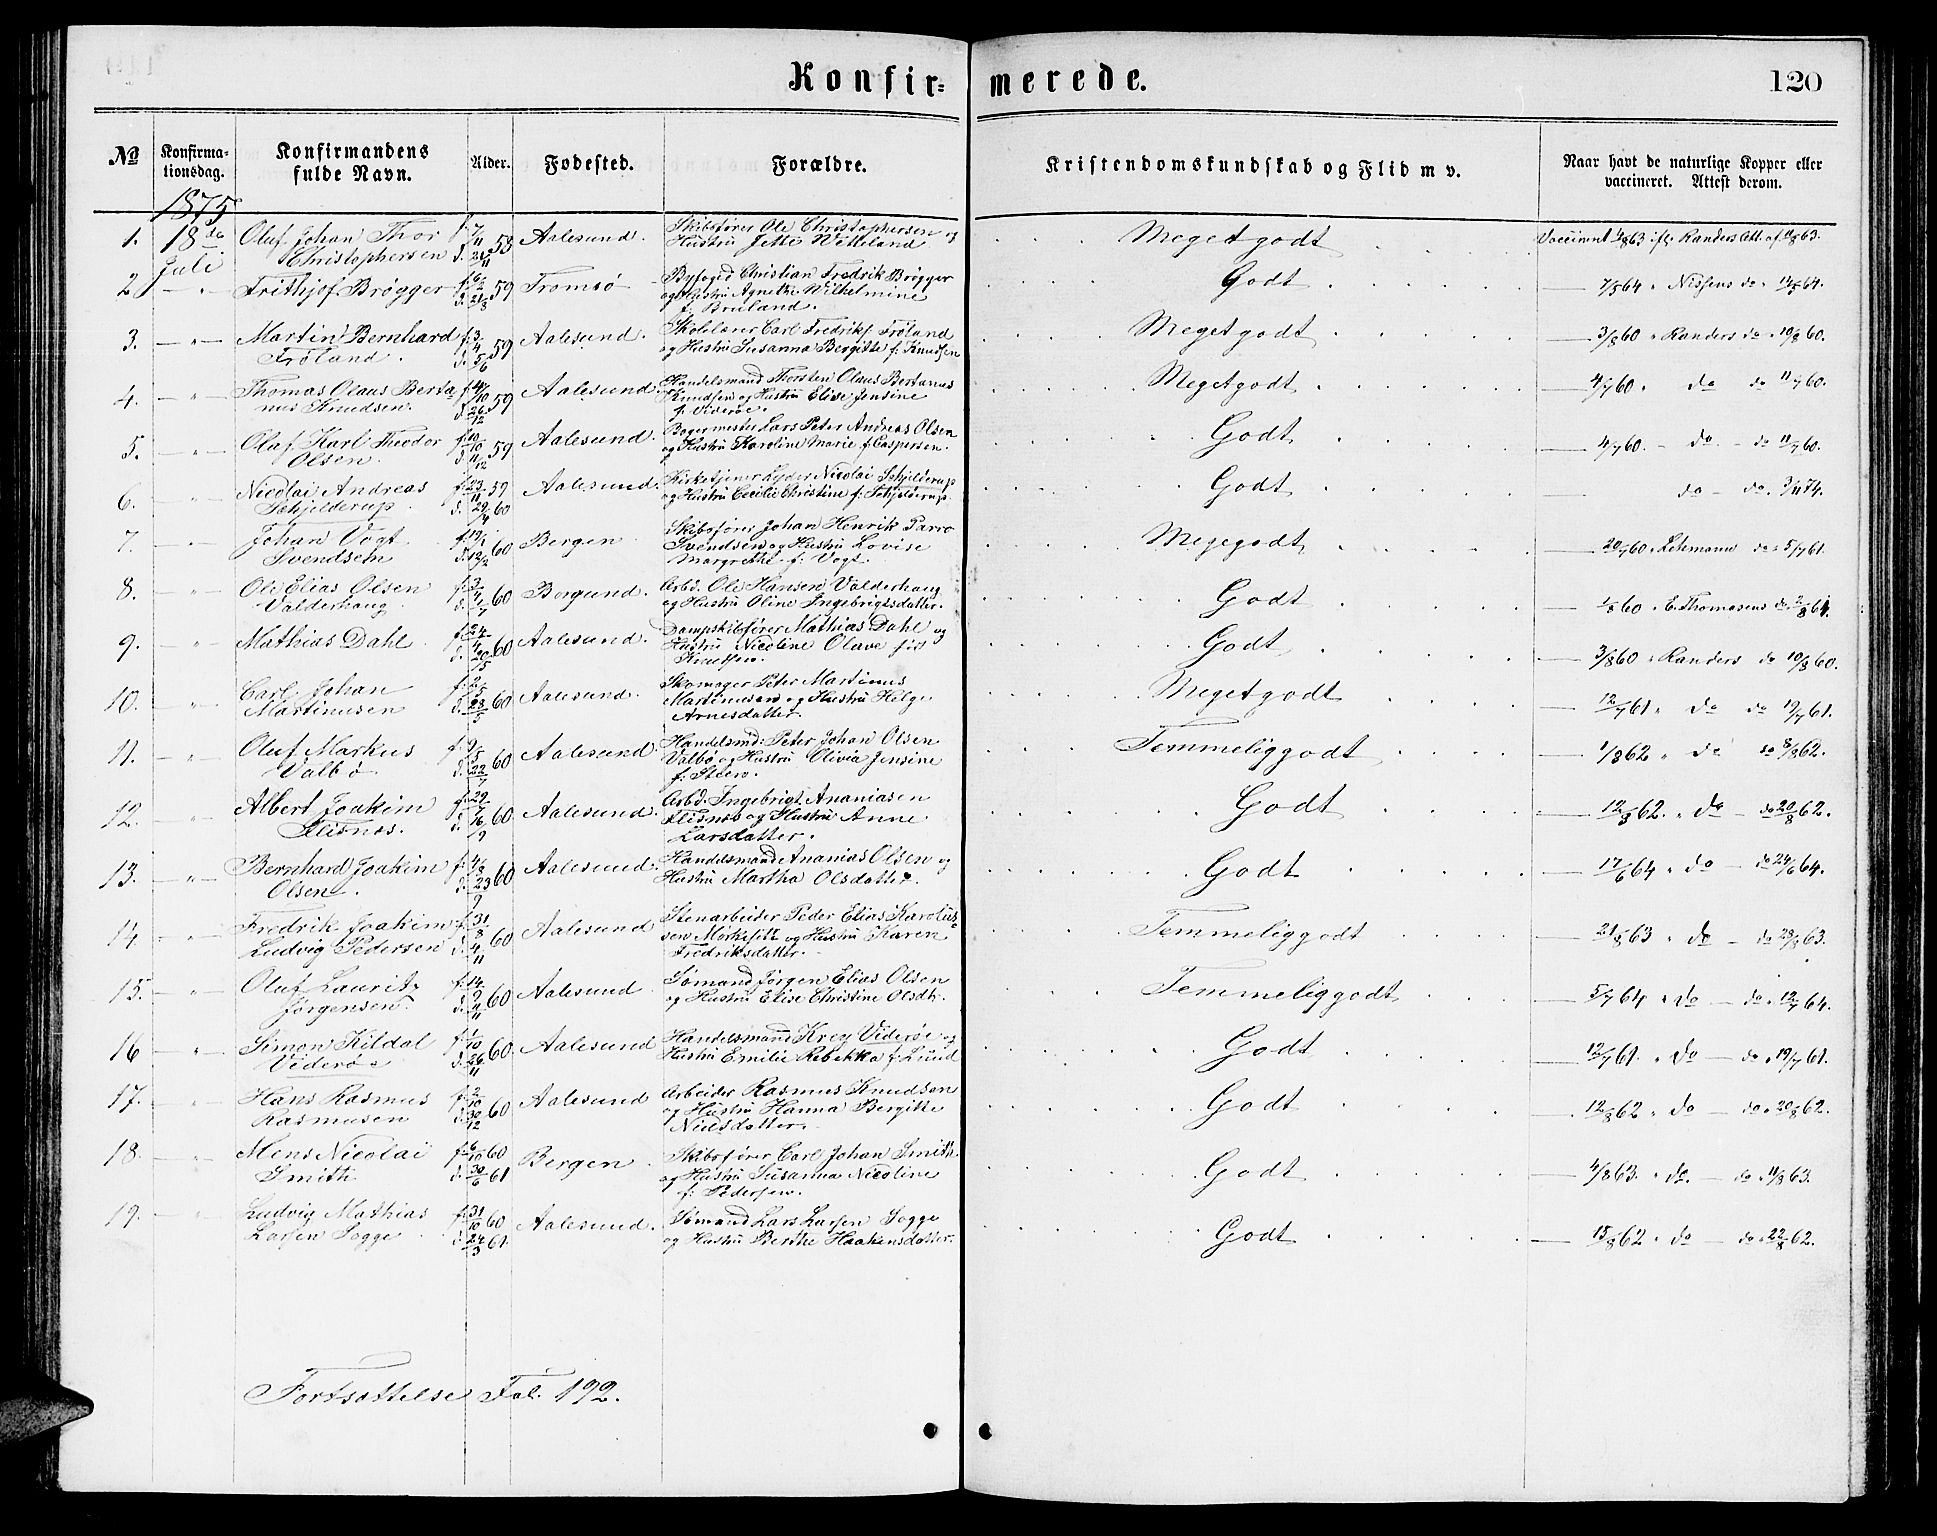 Konfirmerede.
120
No
Konfirma-
tionsdag.
Konfirmandens
fulde Navn.
Alder.
Fodested.
Forældre.
Kristendomskundskab og Flid m v.
Naar havt de naturlige Kopper eller
vaccineret. Attest derom.
1875
1. 18de Juli Oluf Johan Thor Christophersen Aalesund. Skibsfører Ole Christophersen og Hustru Jette Witteland Meget godt
2 Frithjof Brøgger 59 Tromsø Byfoged Christian Fredrik Brøgger og Hustru Agnethe Wilhelmine f. Bruland. Godt 7/8 64 Nissens do 14/8 64.
3. Martin Bernhard Frøland. 59 Aalesund. Carl Fredrik Frøland og Hustru Susanna Bergitte f: Knudsen Meget godt 3/8 60 Randers do 10/8 60.
4. Thomas Olaus Bertanus Knudsen. 59 Aalesund. Handelsmand Thorsten Olaus Bertanus Knudsen og Hustru Elise Jensine f: Viderøe. Meget godt 4/7 60. do do 11/7 60.
5. Olaf Karl Theodor Olsen. 59 Aalesund. Bagermester Lars Peter Andreas Olsen og Hustru Karoline Marie f. Caspersen. Godt 4/7 60. do do 11/7 60.
6. Nicolai Andreas Schjelderup. f: 23/11 59 60 Aalesund. Kirketjener Lyder Nicolai Schjelderup og Hustru Cecilie Christine f: Schjelderup Godt do do 3/11 74.
7. Johan Vogt Svendsen 60 Bergen Skibsfører Johan Henrik Parro Svendsen og Hustru Lovise Margrethe f: Vogt. Megegodt 20/7 60 Lehmann do 5/7 61.
8. Ole Elias Olsen Valderhaug 60 Borgund. Arbd. Ole Hansen Valderhaug og Hustru Oline Ingebrigtsdatter. Godt 1/8 60 E. Thomasens do
9. Mathias Dahl 60 Aalesund. Dampskibfører Mathias Dahl og Hustru Nicoline Olave født Knudsen. Godt 3/8 60 Randers do 10/8 60.
10. Carl Johan Martinusen 60 Aalesund. Skomager Peter Martinus Martinusen og Hustru Helge Arnesdatter Meget godt 12/7 61. do do 19/7 61.
11. Oluf Markus Valbø 60 Aalesund Handelsmd: Peter Johan Olsen Valbø og Hustru Olivia Jensine f: Steen. Temmelig godt 1/8 62 do do 8/8 62.
12. Albert Joakim Flisnes. 60 Aalesund. Arbd. Ingebrigt Ananiasen Flisnes og Hustru Anne Larsdatter. Godt 12/8 62. do do 20/8 62.
13. Bernhard Joakim Olsen. 60 Aalesund. Handelsmand Ananias Olsen og Hustru Martha Olsdatter. Godt 17/6 64 do do 24/6 64.
14 Fredrik Joakim Ludvig Pedersen 60 Aalesund Stenarbeider Peder Elias Karolussen og Hustru Karen Fredriksdatter. Temmelig godt 21/8 63 do do 28/8 63.
15. Oluf Lauritz Jørgensen. 60 Aalesund Sømand Jørgen Elias Olsen og Hustru Elise Christine Olsdtr. Temmelig godt 5/7 64 do do 12/7 64.
16 Simon Kildal Viderøe 60 Aalesund Handelsmand Krey Viderøe og Hustru Emilie Rebekka f: Lund Godt 12/7 61. do do 19/7 61.
17. Hans Rasmus Rasmusen 60 Aalesund Arbeider Rasmus Knudsen og Hustru Hanna Bergitte Nielsdatter. Godt 12/8 62 do do 20/8 62.
18. Mens Nicolai Smith f: 6/10 60 d: 30/6 61 Bergen Skibsfører Carl Johan Smith og Hustru Susanna Nicoline f: Pedersen. Godt 4/8 63. do. do 11/8 63.
19. Ludvig Mathias Larsen Sogge f: 31/10 60 d: 24/3 61. Aalesund. Sømand Lars Larsen Sogge og Hustru Berthe Haakensdatter. Godt 15/8 62 do do 22/8 62.
Fortsættelse Fol. 192.